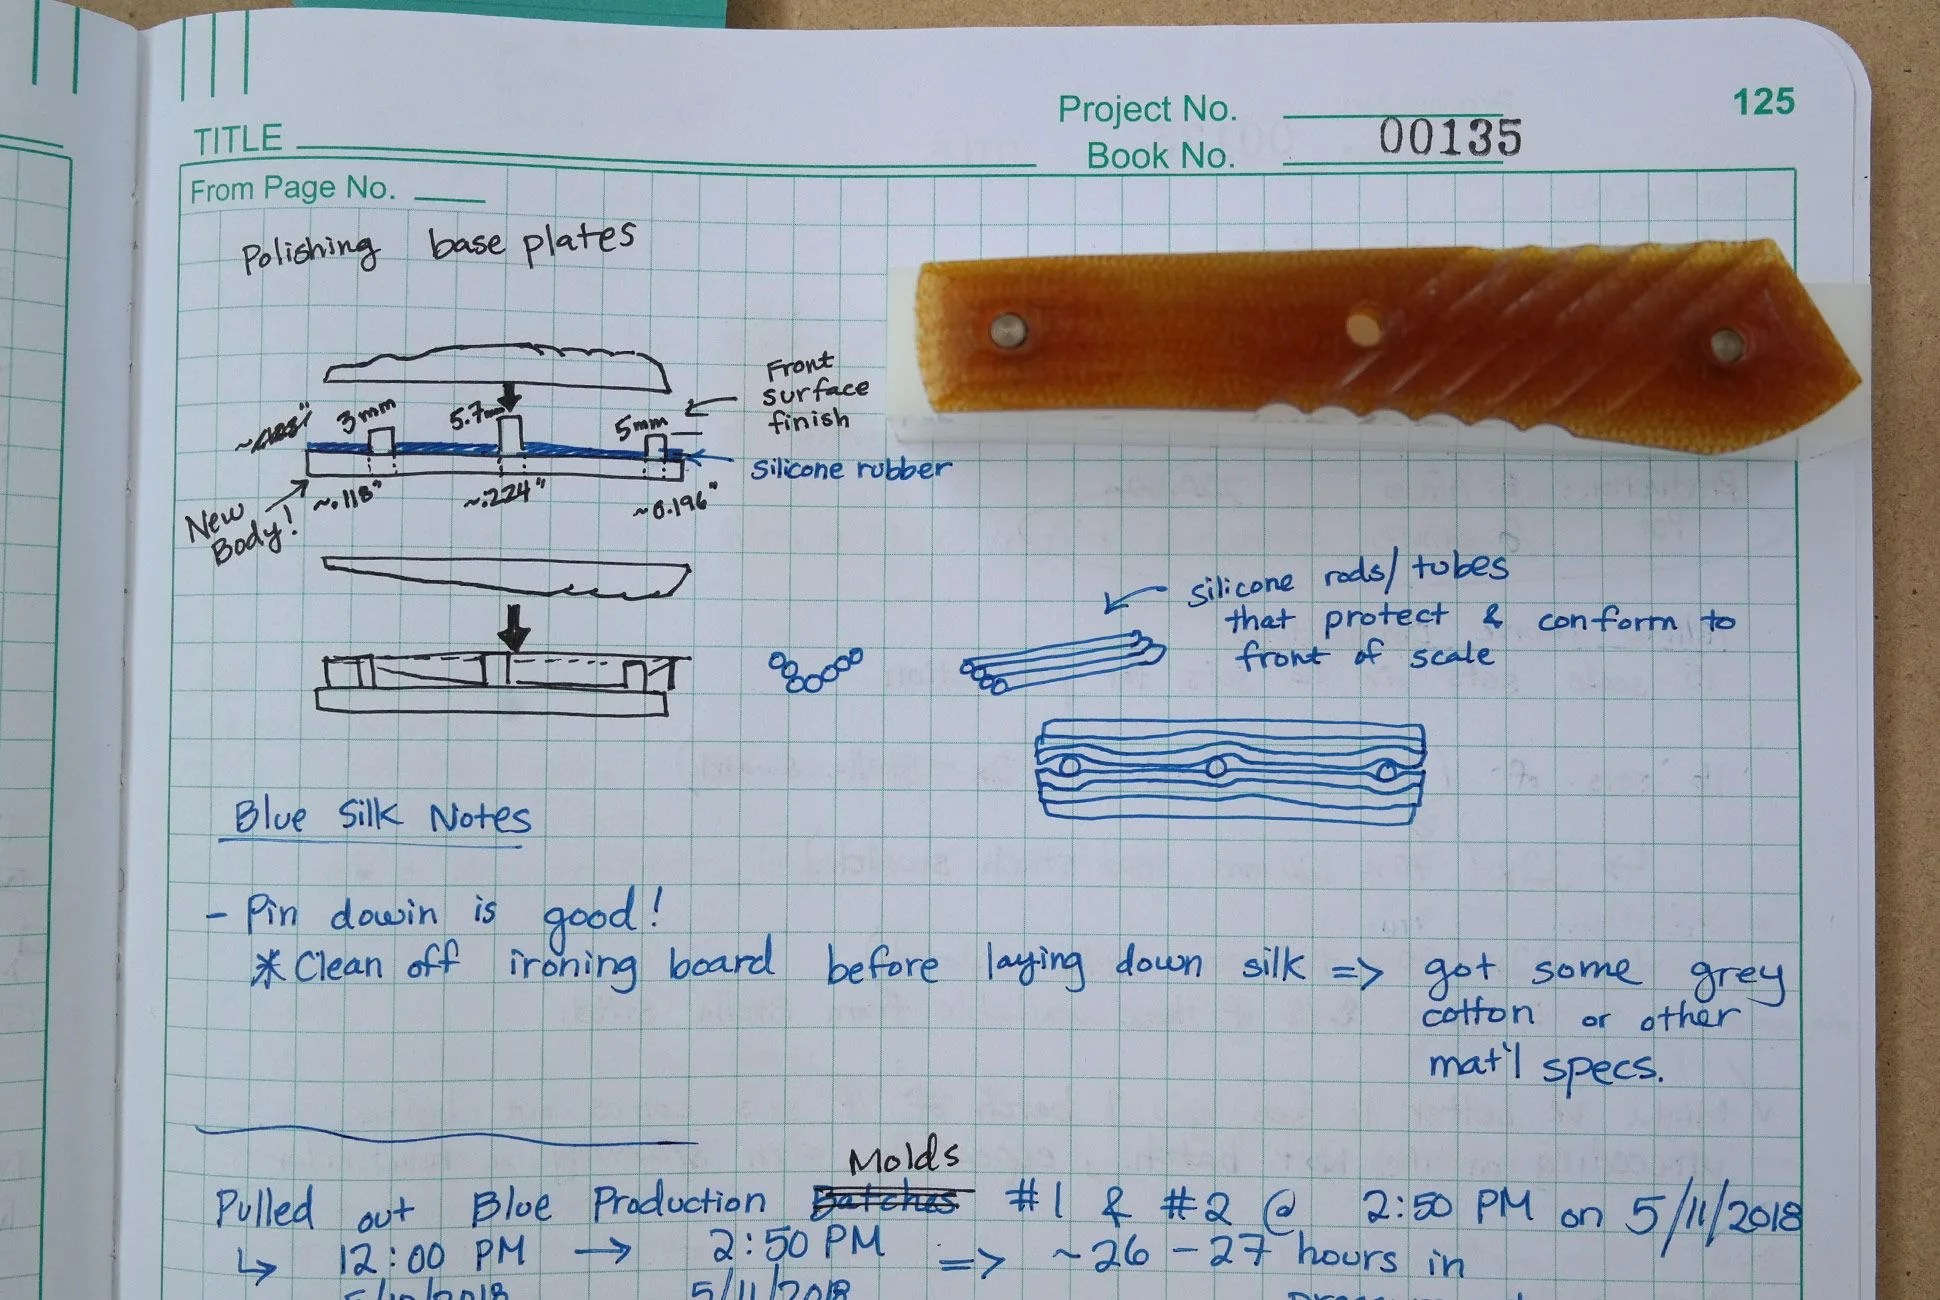 Project No.
125
TITLE
Book No. 00135
From Page No.
Polishing base plates
Front
surface
finish
3mm
5.7mm
5mm
silicone rubber
~.118"
~.224"
~0.196"
New
Body!
silicone rods/tubes
that protect & conform to
front of scale
Blue Silk Notes
- Pin dowin is good!
* Clean off ironing board before laying down silk => got some grey
cotton or other
mat'l specs.
Molds
Pulled out Blue Production Batches #1 & #2 @ 2:50 PM on 5/11/2018
↳ 12:00 PM → 2:50 PM => ~26-27 hours in
5/10/2018 5/11/2018